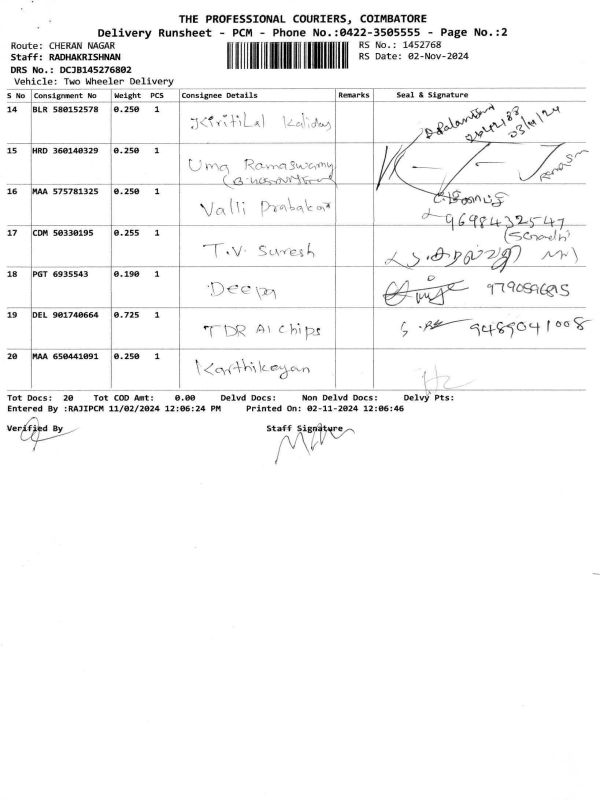 THE PROFESSIONAL COURIERS, COIMBATORE
Delivery Runsheet - PCM - Phone No.:0422-3505555 - Page No.:2
Route: CHERAN NAGAR RS No.: 1452768
Staff: RADHAKRISHNAN RS Date: 02-Nov-2024
DRS No.: DCJB145276802
Vehicle: Two Wheeler Delivery
S No Consignment No Weight PCS Consignee Details Remarks Seal & Signature
14 BLR 580152578 0.250 1 Kiritilal Kalidas
03/11/24
15 HRD 360140329 0.250 1 Uma Ramaswamy
16 MAA 575781325 0.250 1 Valli Prabakar
9698432547
17 CDM 50330195 0.255 1 T.V. Suresh
18 PGT 6935543 0.190 1 Deepa 9790596815
19 DEL 901740664 0.725 1 TDR AI Chips 9489041008
20 MAA 650441091 0.250 1 Karthikeyan
Tot Docs: 20 Tot COD Amt: 0.00 Delvd Docs: Non Delvd Docs: Delvy Pts:
Entered By :RAJIPCM 11/02/2024 12:06:24 PM Printed On: 02-11-2024 12:06:46
Verified By Staff Signature